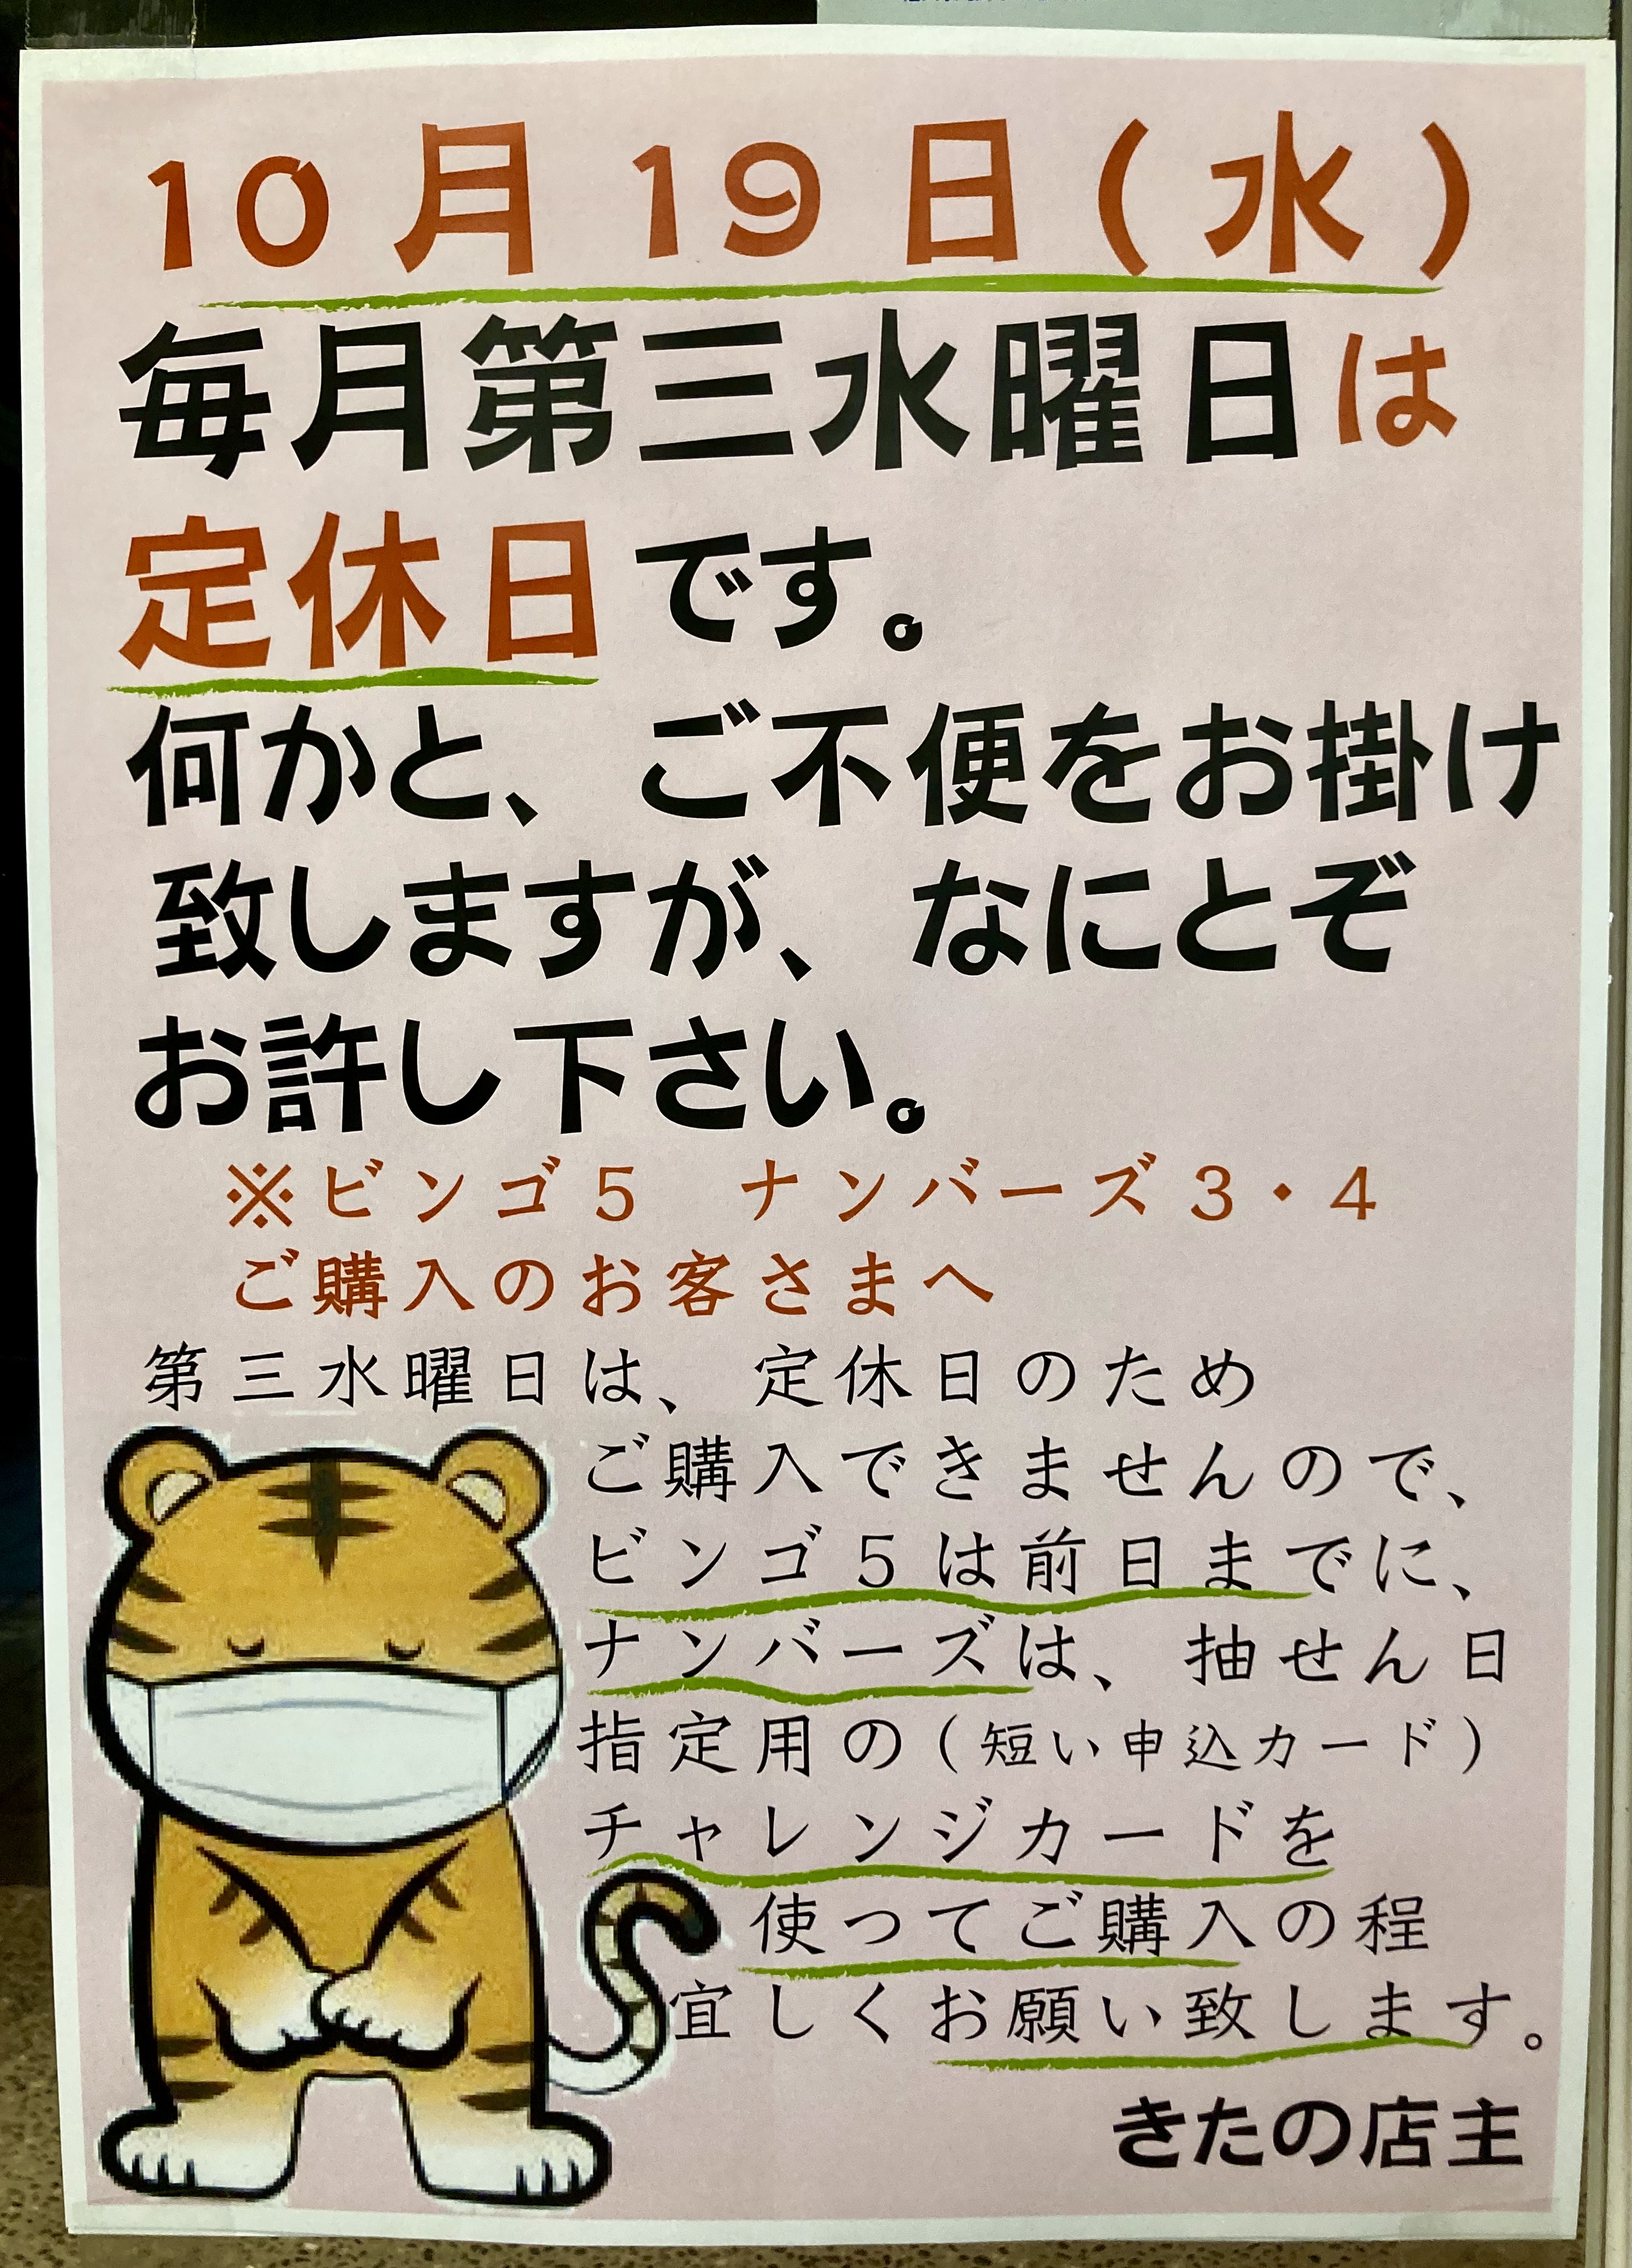 10月19日(水)
毎月第三水曜日は
定休日です。
何かと、ご不便をお掛け
致しますが、なにとぞ
お許し下さい。
※ビンゴ5 ナンバーズ3・4
ご購入のお客さまへ
第三水曜日は、定休日のため
ご購入できませんので、
ビンゴ5は前日までに、
ナンバーズは、抽せん日
指定用の(短い申込カード)
チャレンジカードを
使ってご購入の程
宜しくお願い致します。
きたの店主